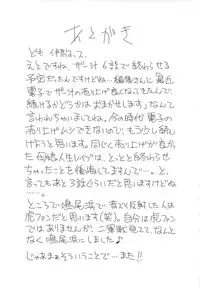 あとがき
ども 伊駒一平です。
えとですね、ザー汁 6話で終わらせる
予定だったんですけどね… 編集さんに「最近
電子でザー汁の売り上げ良くなってきたんで、
続けるかどうかはおまかせします」なんて
言われちゃいましてね。今の時代 電子の
売り上げムシできないので、もう少し続
けようと思います。同じく売り上げが良かっ
た母娘人生レイプは、とっとと終わらせ
ちゃったことを後悔してますんで…。と、
言ってもあと3話ぐらいだと思いますけどね
…。
ところで鳴尾浜で「者ども反射した人は
虎ファンだと思います(笑)。自分は虎ファン
ではありませんが、二軍戦見てて、なんと
なく鳴尾浜にしました♪
じゃあまぁそういうことで…また!!